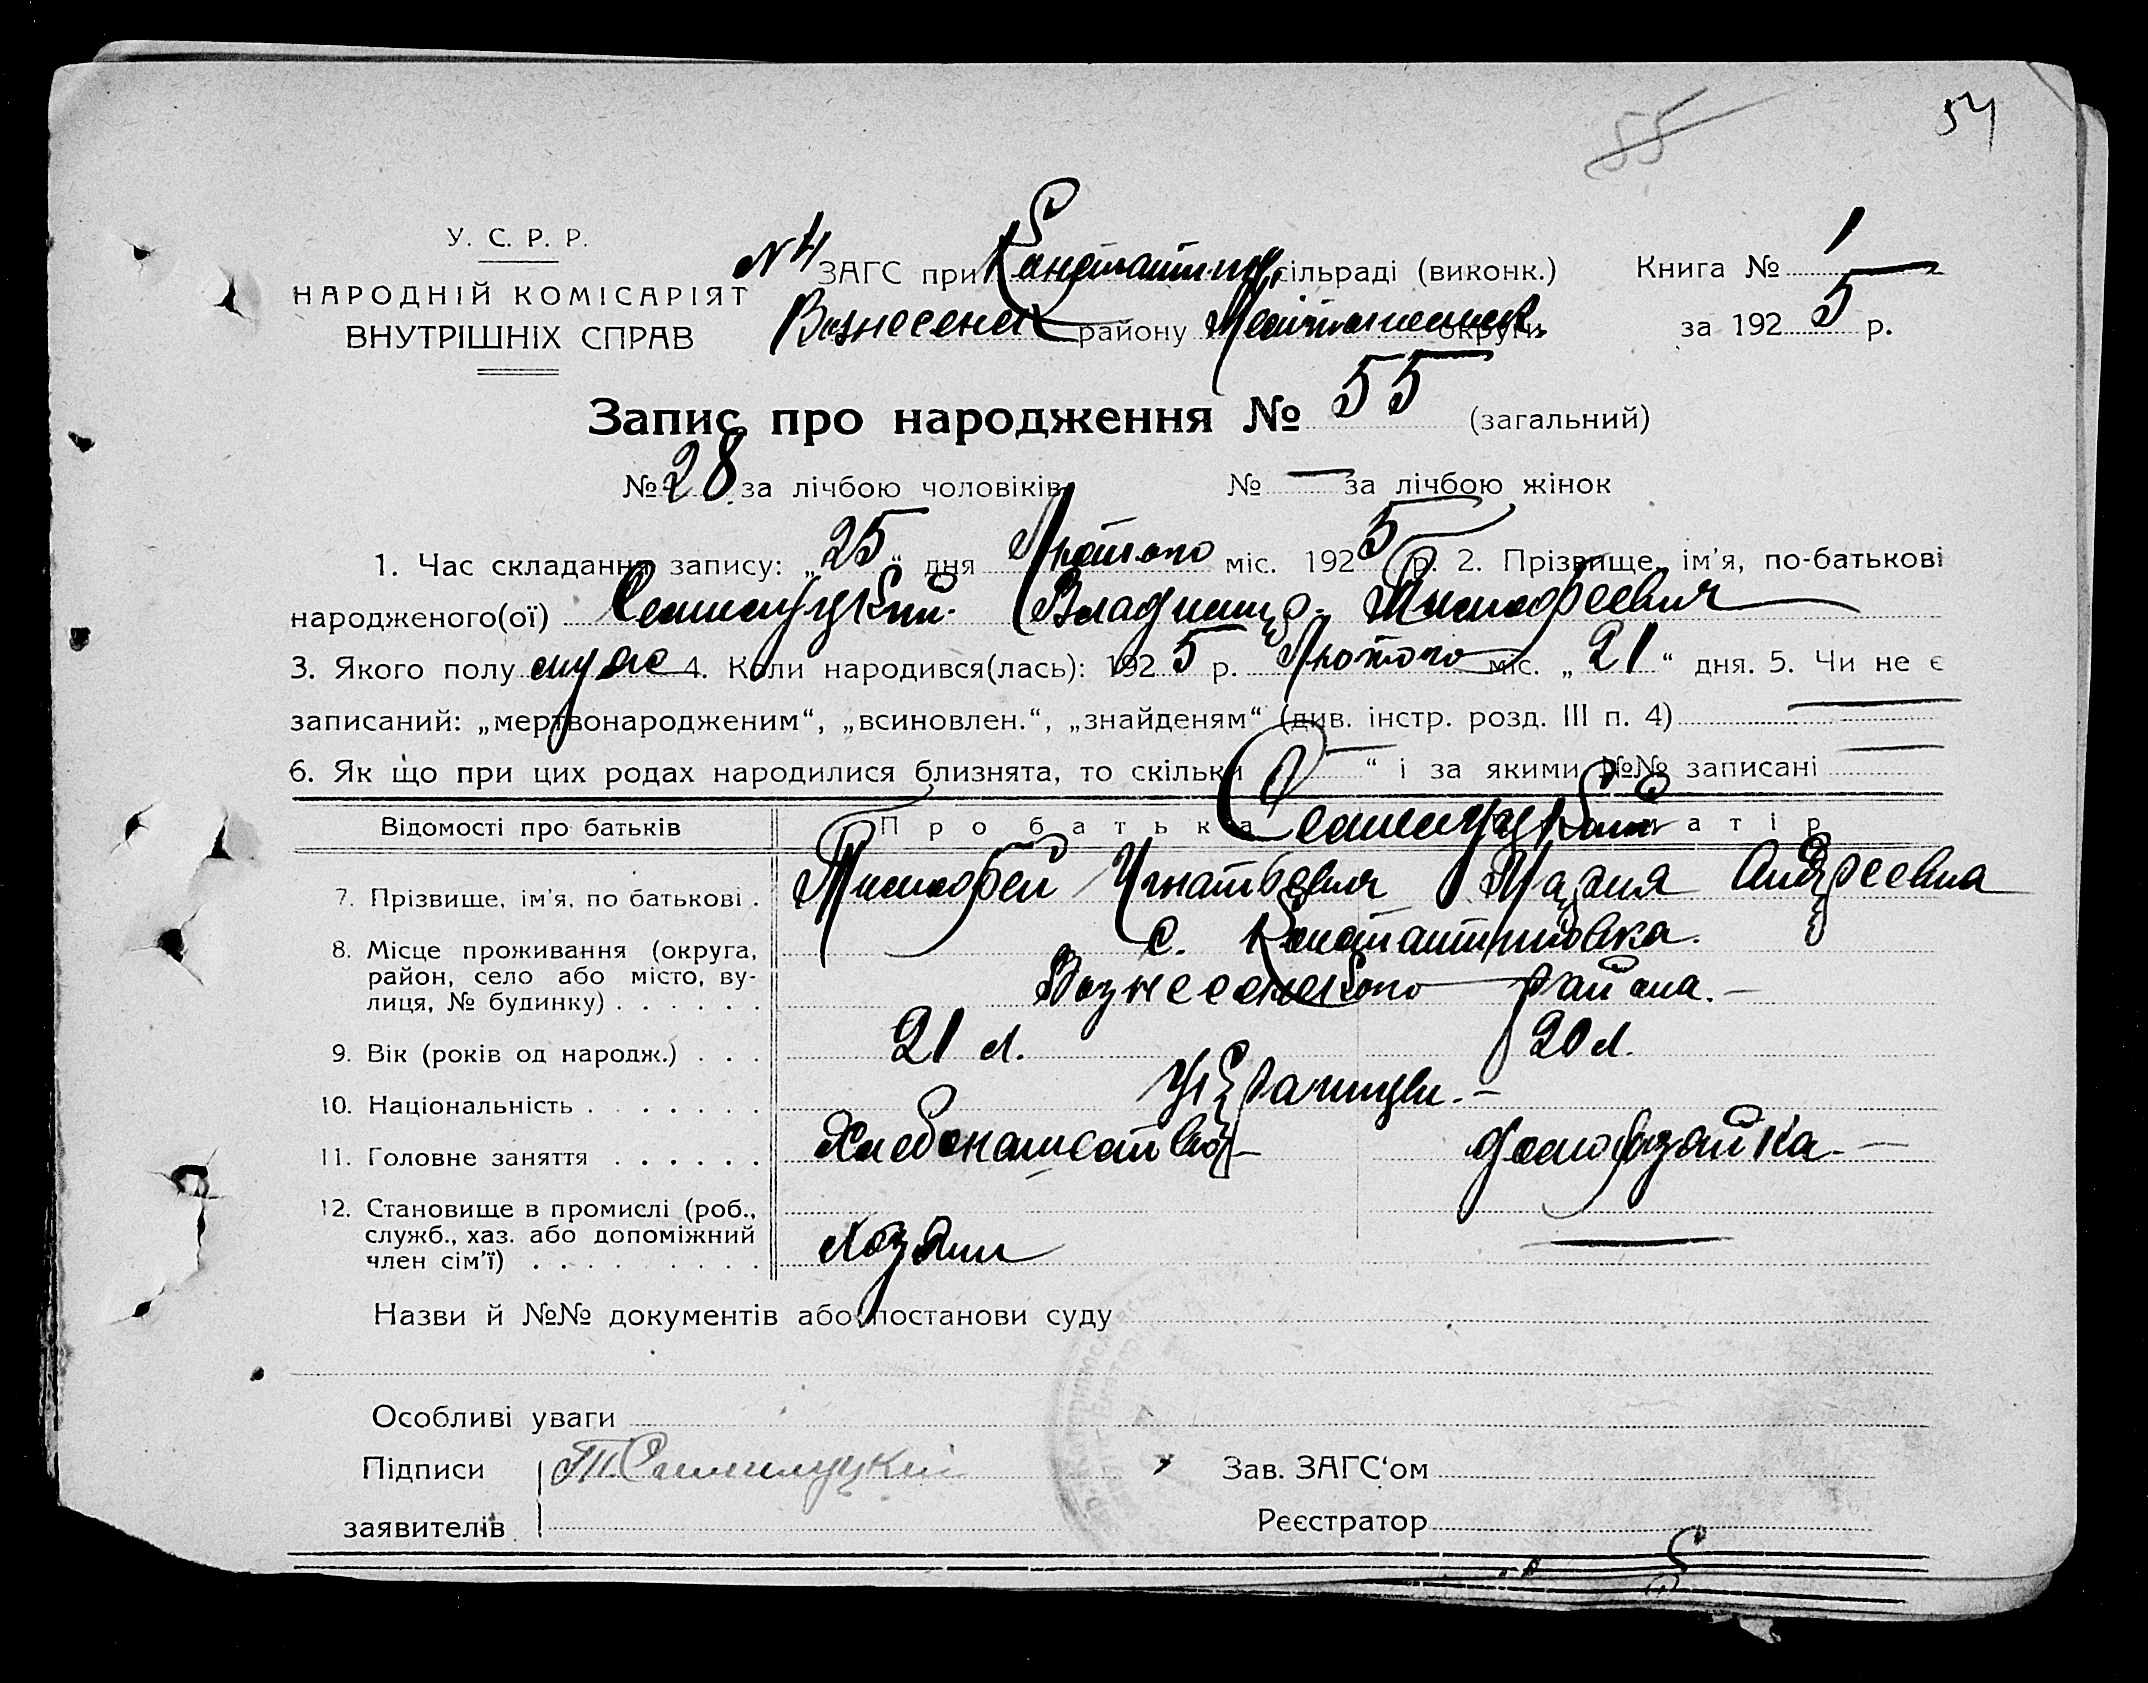 55 54
У. С. Р. Р.
НАРОДНІЙ КОМІСАРІЯТ
ВНУТРІШНІХ СПРАВ
№4 ЗАГС при Константин. сільраді (виконк.)
Вознесенск району Мелітопольск. округи
Книга № 1
за 1925 р.
Запис про народження № 55 (загальний)
№ 28 за лічбою чоловіків № — за лічбою жінок
1. Час складання запису: „25“ дня Лютого міс. 1925 р. 2. Прізвище, ім'я, по-батькові
народженого(ої) Семилуцкий Владимир Тимофеевич
3. Якого полу муж 4. Коли народився(лась): 1925 р. Лютого міс. „21“ дня. 5. Чи не є
записаний: „мертвонародженим“, „всиновлен.“, „знайденям“ (див. інстр. розд. III п. 4) —
6. Як що при цих родах народилися близнята, то скільки „—“ і за якими №№ записані —
Відомості про батьків Про батька Семилуцкие матір
7. Прізвище, ім'я, по батькові . Тимофей Игнатьевич Мария Андреевна
8. Місце проживання (округа, с. Константиновка.
район, село або місто, ву-
лиця, № будинку) . . . . . . Вознесенского района. —
9. Вік (років од народж.) . . . 21 л. 20 л.
10. Національність . . . . . . . Украинцы. —
11. Головне заняття . . . . . . Хлебопашество — домохозяйка —
12. Становище в промислі (роб.,
служб., хаз. або допоміжний Хозяин —
член сім'ї) . . . . . . . .
Назви й №№ документів або постанови суду
Особливі уваги
Підписи Т. Симилуцкий Зав. ЗАГС'ом
заявителів Реєстратор